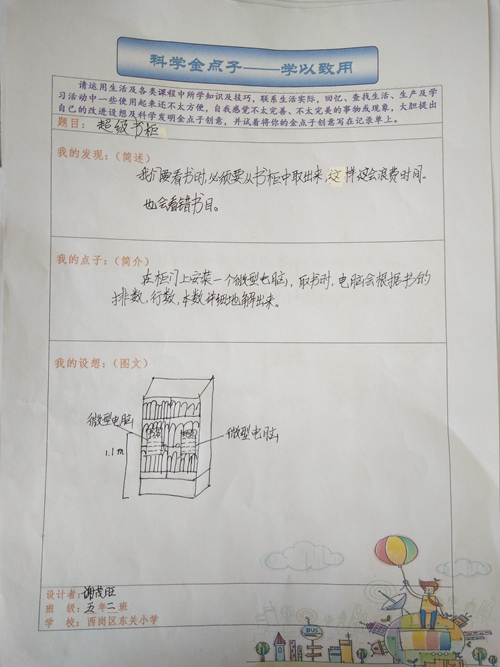 科学金点子——学以致用
请运用生活及各类课程中所学知识及技巧，联系生活实际，回忆、查找生活、生产及学
习活动中一些使用起来还不太方便，自我感觉不太完善、不太完美的事物或现象，大胆提出
自己的改进设想及科学发明金点子创意，并试着将你的金点子创意写在记录单上。
题目：超级书柜
我的发现：（简述）
我们要看书时，必须要从书柜中取出来，这样这会浪费时间。
也会看错书目。
我的点子：（简介）
在柜门上安装一个微型电脑，取书时，电脑会根据书的
排数，行数，本数详细地解出来。
我的设想：（图文）
微型电脑
微型电脑
1.1m
设计者：谢茂臣
班 级：五年二班
学 校：西岗区东关小学
BUS